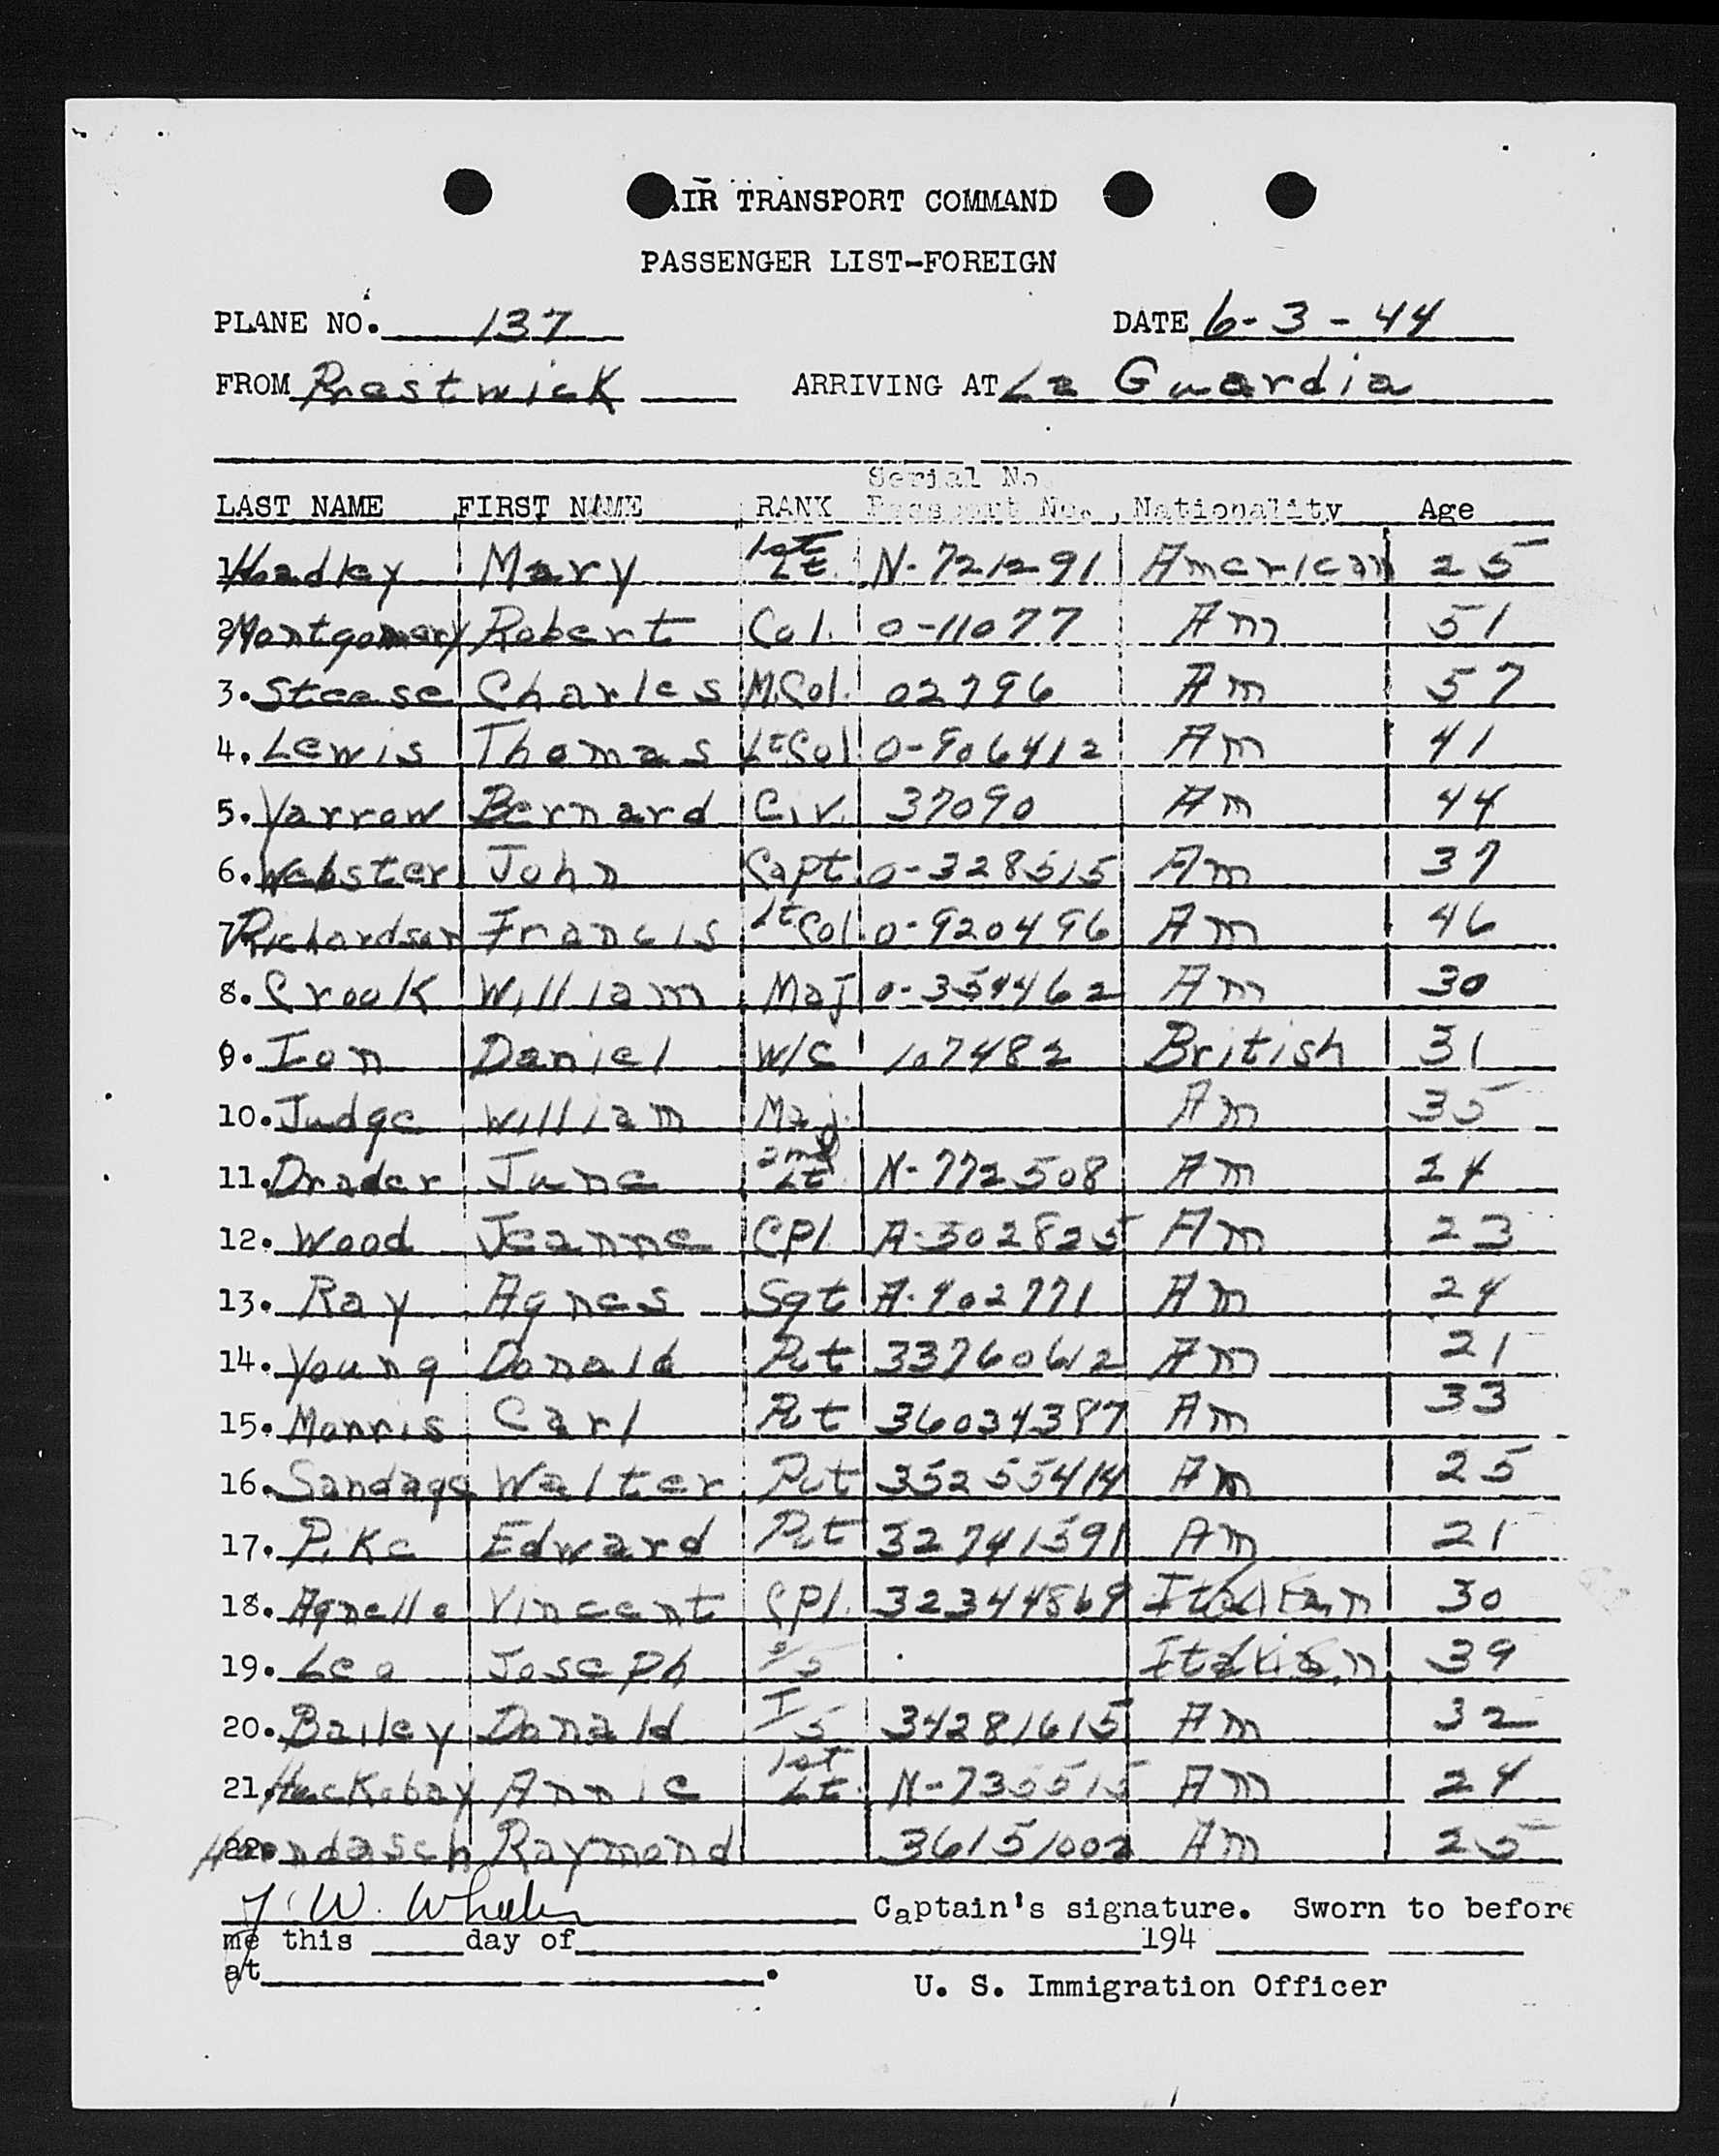 AIR TRANSPORT COMMAND
PASSENGER LIST-FOREIGN
PLANE NO. 137 DATE 6-3-44
FROM Prestwick ARRIVING AT La Guardia
Serial No.
LAST NAME FIRST NAME RANK Passport No. Nationality Age
1. Hoadley Mary 1st Lt. N-721291 American 25
2. Montgomery Robert Col. 0-11077 Am 51
3. Stease Charles M.Col. 02796 Am 57
4. Lewis Thomas Lt Col 0-906412 Am 41
5. Yarrow Bernard Civ. 37090 Am 44
6. Webster John Capt. 0-328515 Am 37
7. Richardson Francis Lt Col. 0-920496 Am 46
8. Crook William Maj 0-354462 Am 30
9. Ion Daniel W/C 107482 British 31
10. Judge William Maj. Am 35
11. Drader June 2nd Lt. N-772508 Am 24
12. Wood Jeanne Cpl. A-502825 Am 23
13. Ray Agnes Sgt A-902771 Am 24
14. Young Donald Pvt 33760612 Am 21
15. Morris Carl Pvt 36034387 Am 33
16. Sandage Walter Pvt 35255414 Am 25
17. Pike Edward Pvt 32741591 Am 21
18. Agnello Vincent Cpl. 32344869 Italian 30
19. Leo Joseph Italian 39
20. Bailey Donald T/5 34281615 Am 32
21. Huckabay Annie 1st Lt. N-735515 Am 24
22. Raymond 36151002 Am 25
W. Wheeler Captain's signature. Sworn to before
me this day of 194
at .
U. S. Immigration Officer